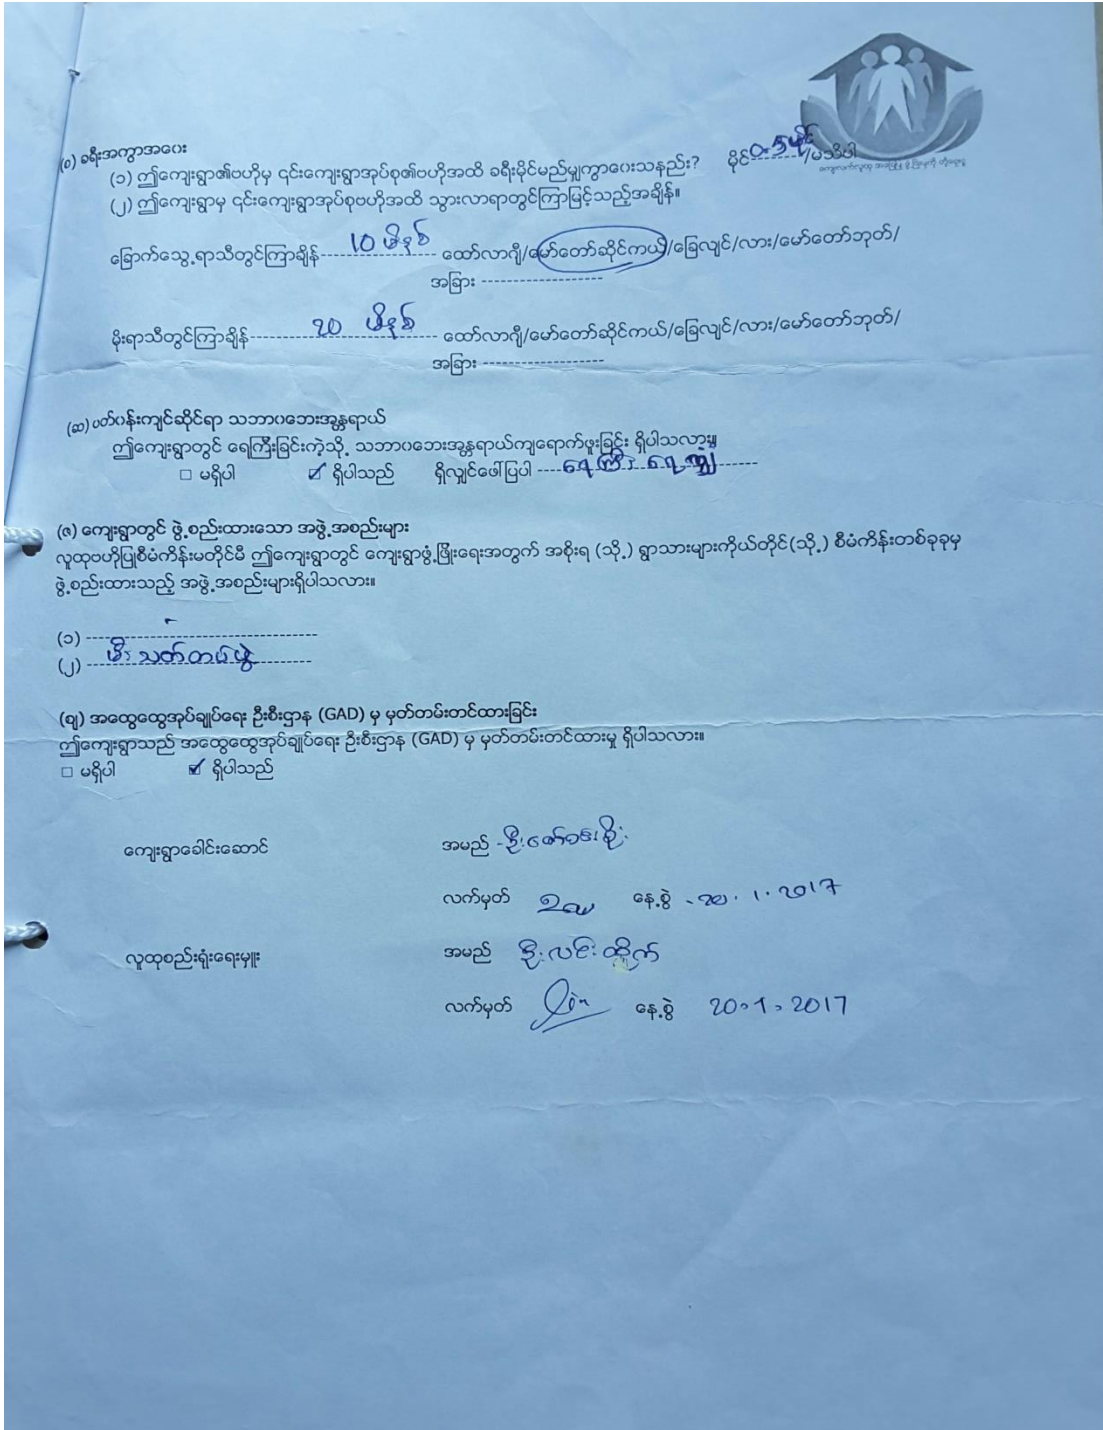 (စ) ခရီးအကွာအဝေး
(၁) ဤကျေးရွာ၏ဗဟိုမှ ၎င်းကျေးရွာအုပ်စု၏ဗဟိုအထိ ခရီးမိုင်မည်မျှကွာဝေးသနည်း? မိုင် ၀.၅ မိုင် /မသိပါ
(၂) ဤကျေးရွာမှ ၎င်းကျေးရွာအုပ်စုဗဟိုအထိ သွားလာရာတွင်ကြာမြင့်သည့်အချိန်။
ခြောက်သွေ့ရာသီတွင်ကြာချိန် 10 မိနစ် ထော်လာဂျီ/မော်တော်ဆိုင်ကယ်/ခြေလျင်/လား/မော်တော်ဘုတ်/
အခြား -------------------
မိုးရာသီတွင်ကြာချိန် ၂၀ မိနစ် ထော်လာဂျီ/မော်တော်ဆိုင်ကယ်/ခြေလျင်/လား/မော်တော်ဘုတ်/
အခြား -------------------
(ဆ) ပတ်ဝန်းကျင်ဆိုင်ရာ သဘာဝဘေးအန္တရာယ်
ဤကျေးရွာတွင် ရေကြီးခြင်းကဲ့သို့ သဘာဝဘေးအန္တရာယ်ကျရောက်ဖူးခြင်း ရှိပါသလား။
□ မရှိပါ ☑ ရှိပါသည် ရှိလျှင်ဖော်ပြပါ ---- ရေကြီး ရေလျှံ
(ဇ) ကျေးရွာတွင် ဖွဲ့စည်းထားသော အဖွဲ့အစည်းများ
လူထုဗဟိုပြုစီမံကိန်းမတိုင်မီ ဤကျေးရွာတွင် ကျေးရွာဖွံ့ဖြိုးရေးအတွက် အစိုးရ (သို့) ရွာသားများကိုယ်တိုင်(သို့) စီမံကိန်းတစ်ခုခုမှ
ဖွဲ့စည်းထားသည့် အဖွဲ့အစည်းများရှိပါသလား။
(၁) -----------------------------------
(၂) --- မီးသတ်တပ်ဖွဲ့
(ဈ) အထွေထွေအုပ်ချုပ်ရေး ဦးစီးဌာန (GAD) မှ မှတ်တမ်းတင်ထားခြင်း
ဤကျေးရွာသည် အထွေထွေအုပ်ချုပ်ရေး ဦးစီးဌာန (GAD) မှ မှတ်တမ်းတင်ထားမှု ရှိပါသလား။
□ မရှိပါ ☑ ရှိပါသည်
ကျေးရွာခေါင်းဆောင် အမည် - ဦးဇော်
လက်မှတ် နေ့စွဲ - ၂၀.၁.၂၀17
လူထုစည်းရုံးရေးမှူး အမည် ဦးလင်းထိုက်
လက်မှတ် နေ့စွဲ 20.1.2017